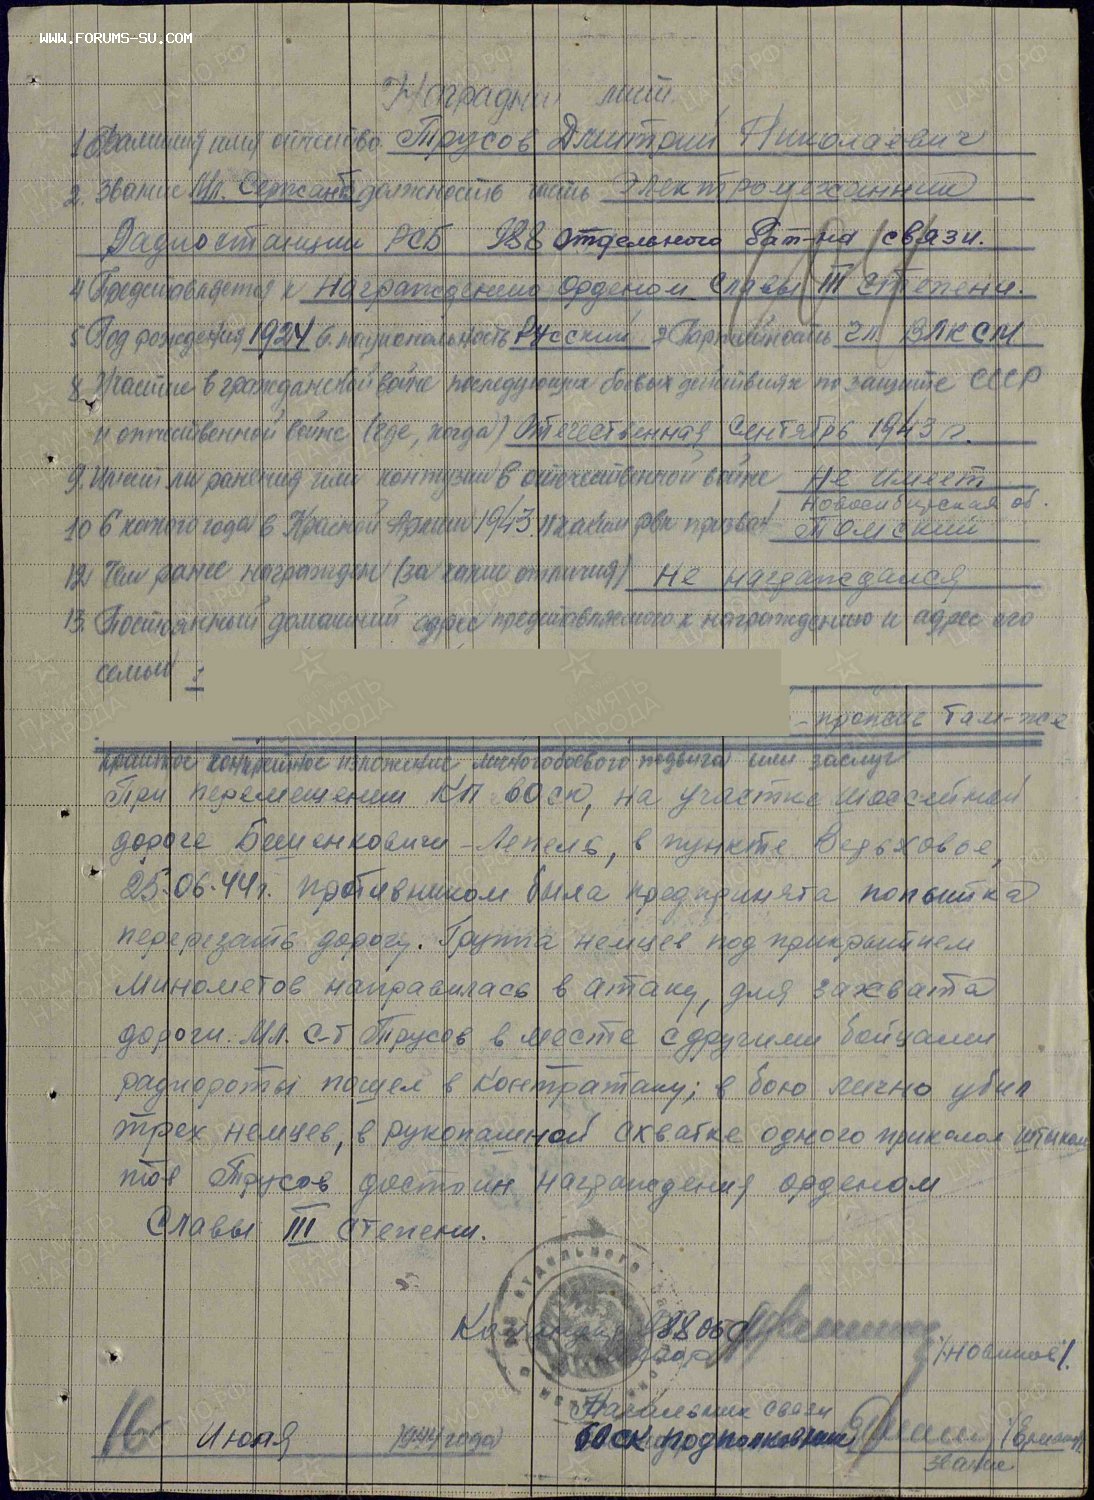 WWW.FORUMS-SU.COM
Наградны лист
1. Фамилия имя отчество Трусов Дмитрий Николаевич
2. Звание Мл. Сержант должность часть Электромеханник
Радиостанции РСБ 988 отдельного бат-на связи.
4 Представляется к Награждению орденом Славы III степени.
5 Год рождения 1924 6. национальность Русский 7 Партийность чл. ВЛКСМ
8 Участие в гражданской войне последующих боевых действиях по защите СССР
и отечественной войне (где, когда) Отечественная Сентябрь 1943 г.
9. Имеет ли ранения или контузии в отечественной войне Не имеет
10 С какого года в Красной Армии 1943. 11 каким рвк призван Новосибирская об.
Томский
12 Чем ранее награжден (за какие отличия) Не награждался
13. Постоянный домашний адрес представляемого к награждению и адрес его
семьи
- прожив там-же
краткое конкретное изложение личного боевого подвига или заслуг
При перемещении КП 60 ск, на участке шоссейной
дороге Бешенковичи - Лепель, в пункте
25.06.44 г. противником была предпринята попытка
перерезать дорогу. Группа немцев под прикрытием
минометов направилась в атаку, для захвата
дороги. Мл. с-т Трусов в месте с другими бойцами
радиороты пошел в контратаку; в бою лично убил
трех немцев, в рукопашной схватке одного приколол штыком
тов Трусов достоин награждения орденом
Славы III степени.
Командир 988 обс
майор
Начальник связи
60 ск подполковник
звание
16 Июля 1944 года